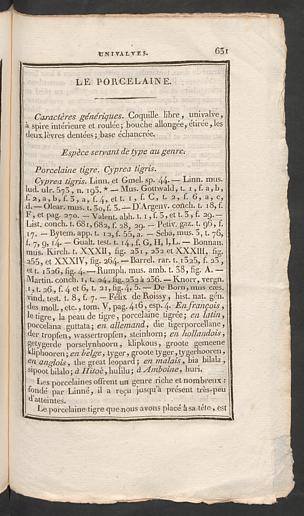 UNIVALVES. 631
LE PORCELAINE.
Caractères génériques. Coquille libre, univalve,
à spire intérieure et roulée; bouche allongée, étirée, les
deux lèvres dentées; base échancrée.
Espèce servant de type au genre.
Porcelaine tigre. Cyprea tigris.
Cyprea tigris. Linn. et Gmel. sp. 44. — Linn. mus.
lud. ulr. 573, n. 193. * — Mus. Gottwald, t. 1, f. a, b,
f. 2, a, b, f. 3, a, f. 4, et t. 1, f. C, t. 2, f. 6, a, c,
d. — Olear. mus. t. 30, f. 3. — D'Argenv. conch. t. 18, f.
F, et pag. 270. — Valent. abh. t. 1, f. 5, et t. 3, f. 29. —
List. conch. t. 681, 682, f. 28, 29. — Petiv. gaz. t. 96, f.
17. — Bytem. app. t. 12, f. 55, — Seba, mus. 3, t. 76,
f. 7, 9, 14. — Gualt. test. t. 14, f. G, H, I, L. — Bonnan.
mus. Kirch. t. XXXII, fig. 231, 232 et XXXIII, fig.
255, et XXXIV, fig. 264. — Barrel. rar. t. 1325, f. 23,
et t. 1326, fig. 4. — Rumph. mus. amb. t. 38, fig. A. —
Martin. conch. 1, t. 24, fig. 232 à 236. — Knorr, vergn.
1, t. 26, f. 4 et 6, t. 21, fig. 4, 5. — De Born, mus. cæs.
vind. test. t. 8, f. 7. — Félix de Roissy, hist. nat. gén.
des moll., etc., tom. V, pag. 416, esp. 4. En françois,
le tigre, la peau de tigre, porcelaine tigrée; en latin,
porcelana guttata; en allemand, die tigerporcellane,
der tropfen, wassertropfen, steinhorn; en hollandois,
getygerde porselynhoorn, klipkous, groote gemeene
kliphooren; en belge, tyger, groote tyger, tygerhooren,
en anglois, the great leopard; en malais, bia bilala,
sipoot bilalo; à Hitoè, hulilu; à Amboine, huri.
Les porcelaines offrent un genre riche et nombreux:
fondé par Linné, il a reçu jusqu'à présent très-peu
d'atteintes.
Le porcelaine tigre que nous avons placé à sa tête, est